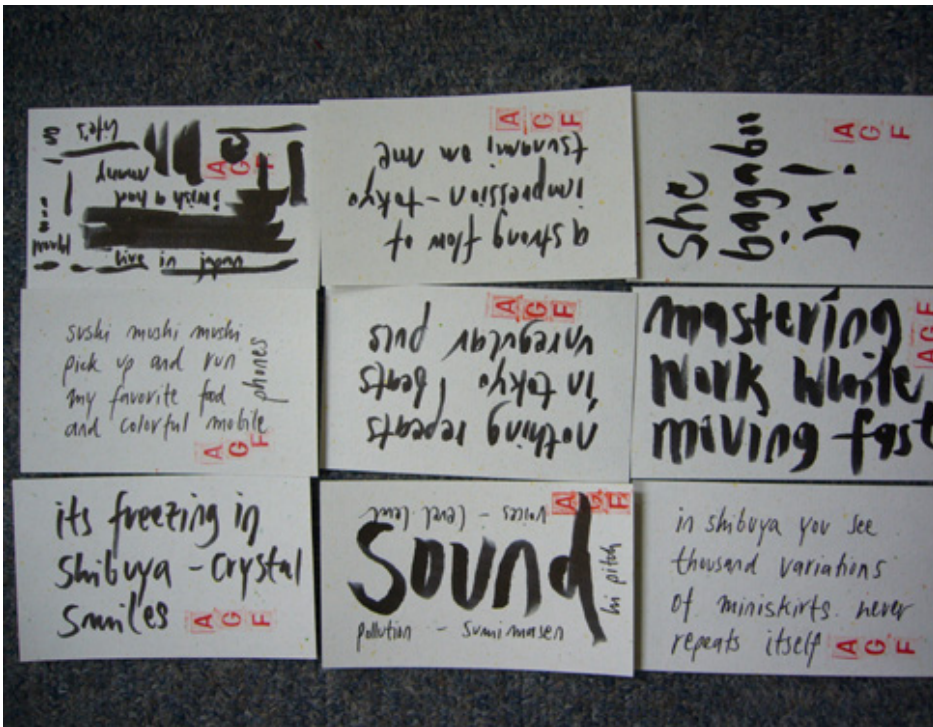 life's
funny
british a hood
live in japan
world
A G F
a strong flow of
impression - tokyo
tsunami on me
A G F
she
bagaboo
jr!
A G F
sushi mushi mushi
pick up and run
my favorite food
and colorful mobile
phones
A G F
nothing repeats
in tokyo, beats
unregular puls
A G F
mastering
work while
moving fast
A G F
its freezing in
shibuya - crystal
smiles
A G F
voices - level low
sound
hi pitch
pollution - sumimasen
A G F
in shibuya you see
thousand variations
of miniskirts. never
repeats itself
A G F